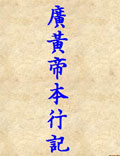 廣黃帝本行記